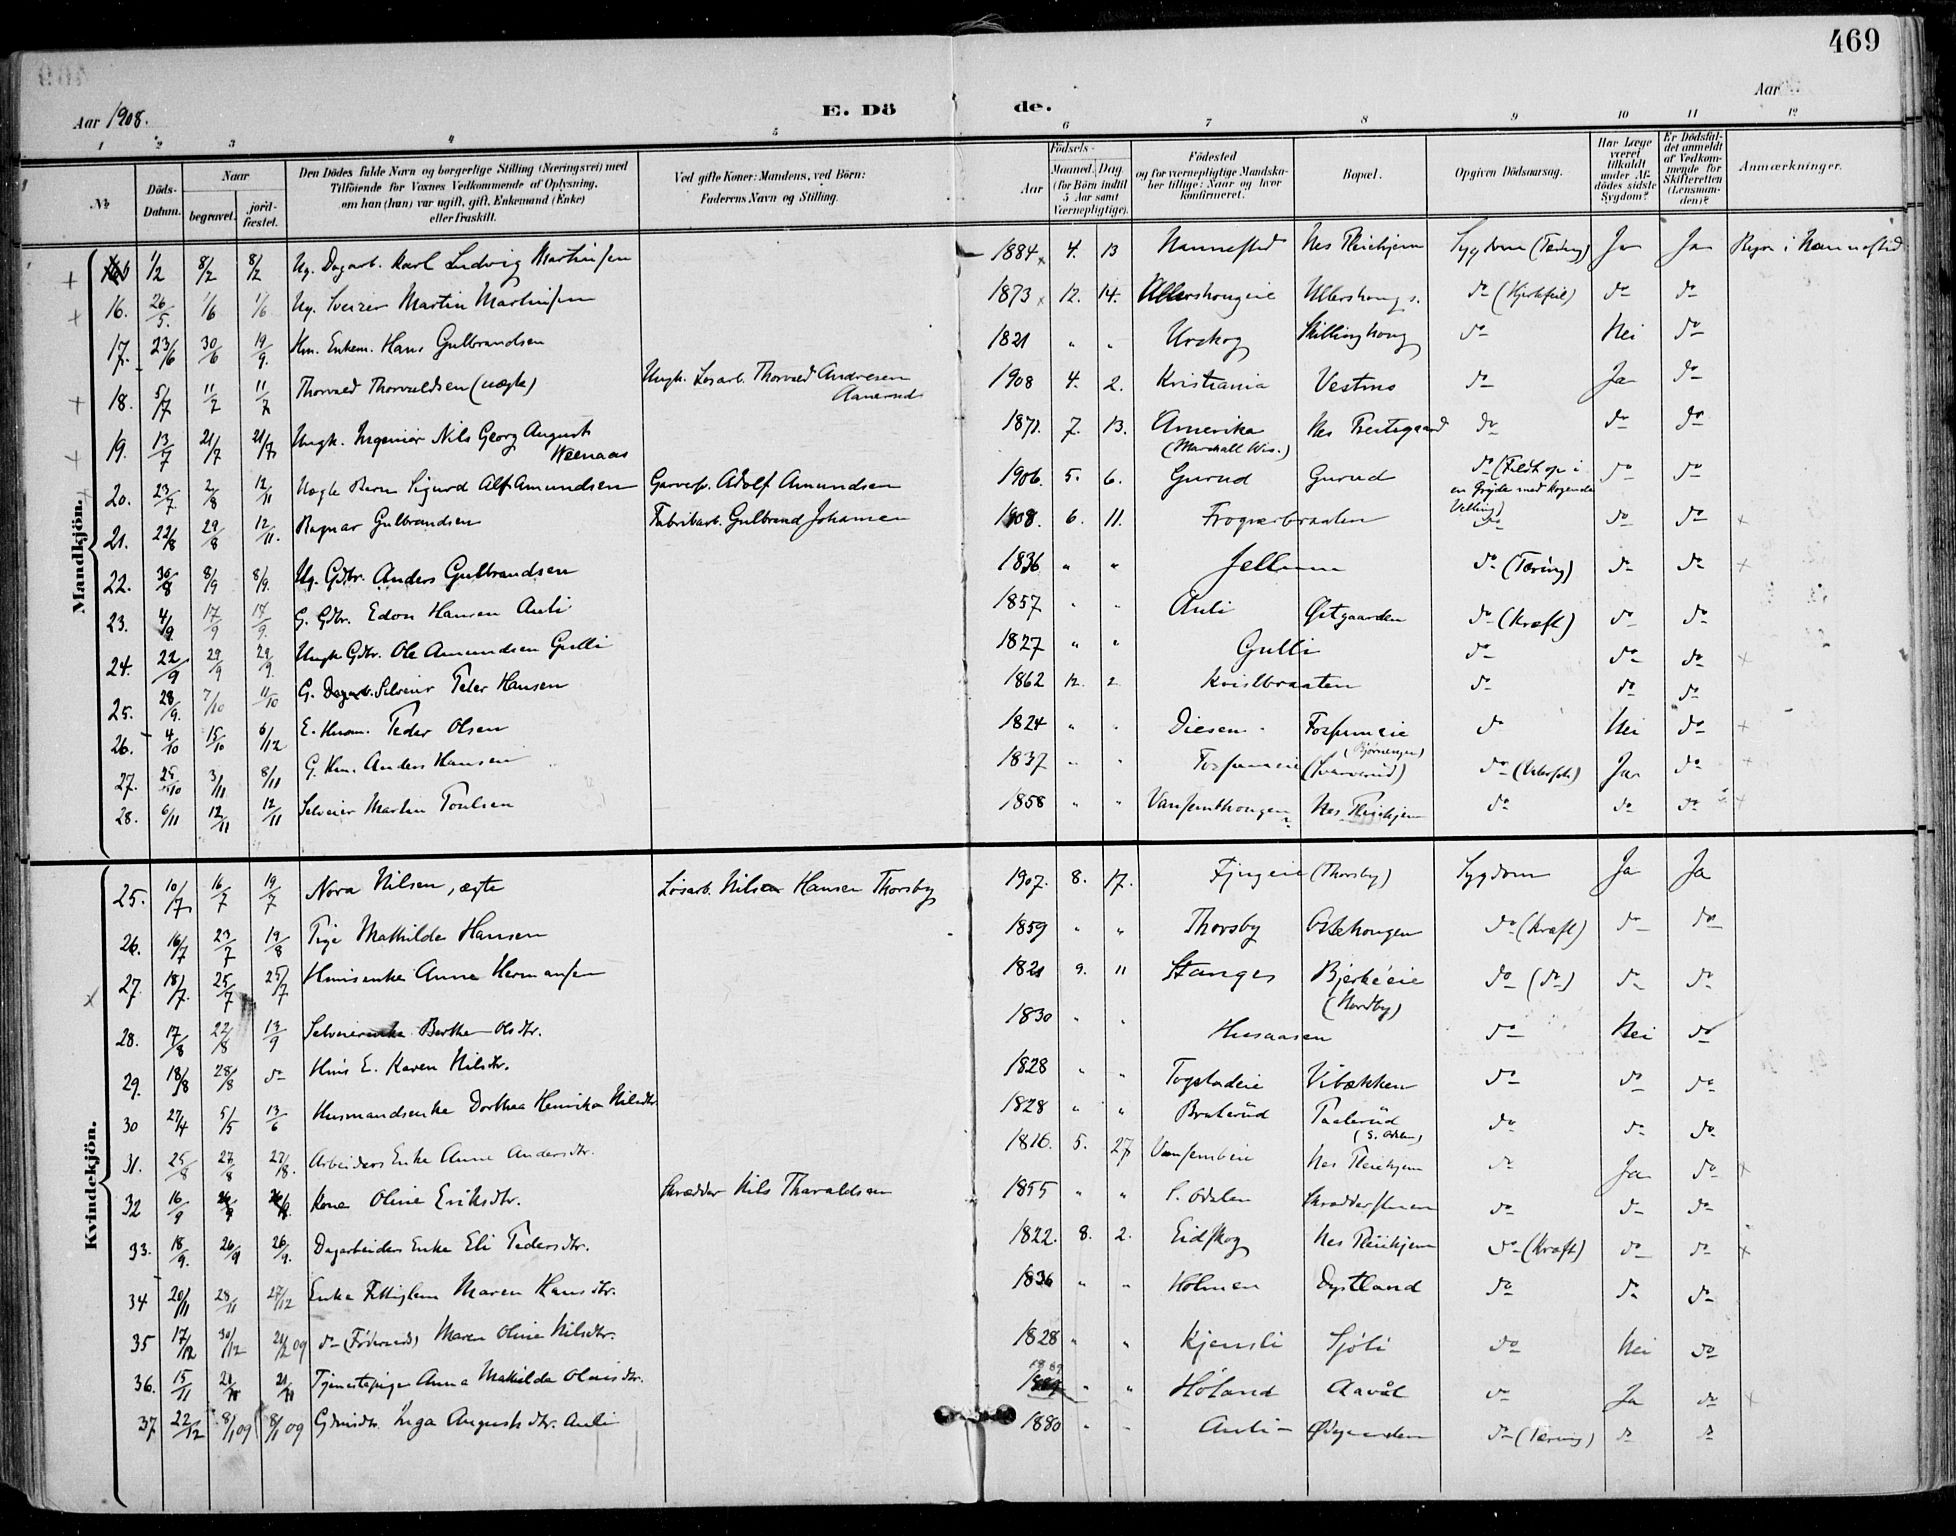 469
Aar 1908.
E. Döde.
Aar
1 2 3 4 5 6 7 8 9 10 11 12
№
Döds-Datum.
Naar
begravet.
jord-fæstet.
Den Dödes fulde Navn og borgerlige Stilling (Næringsvei) med
Tilföiende for Voxnes Vedkommende af Oplysning,
om han (hun) var ugift, gift, Enkemand (Enke)
eller fraskilt.
Ved gifte Koner: Mandens, ved Börn:
Faderens Navn og Stilling.
Aar
Födsels-
Maaned. Dag
(for Börn indtil
5 Aar samt
Værnepligtige).
Födested
og for værnepligtige Mandskaber tillige: Naar og hvor
konfirmeret.
Bopæl.
Opgiven Dödsaarsag.
Har Læge
været
tilkaldt
under Afdödes sidste
Sygdom?
Er Dödsfaldet anmeldt
af Vedkommende for
Skifteretten
(Lensmanden)?
Anmærkninger.
Mandkjön.
1/2 8/2 8/2 Ug. Dagarb. Karl Ludvig Martinsen 1884 4. 13 Nannestad Nes Pleiehjem Sygdom (Tæring) Ja Ja i Nannestad
16. 26/5. 1/6 1/6 Ug. Sveizer Martin Martinsen 1873 12. 14. Ullershougeie Ullershoug do (Hjertefeil) do do
17. 23/6 30/6 19/9. Hm. Enkem. Hans Gulbrandsen 1821 " " Urskog Skillinghoug do Nei do
18. 5/7 11/7 11/7 Thorvald Thorvaldsen (uægte) Ungk. Løsarb. Thorvald Andresen Aanerud 1908 4. 2. Kristiania Vestmo do Ja do
19. 13/7 21/7 21/7 Ungk. Ingeniør Nils Georg August Weenaas 1871. 7. 13. Amerika (Marshall Wis.) Nes Prestegaard do do do
20. 23/7 2/8 12/11 Uægte Barn Sigurd Alf Amundsen Garversv. Adolf Amundsen 1906. 5. 6. Gurud Gurud do (Faldt op i en Gryde med kogende Velling) do do
21. 22/8 29/8 12/11. Ragnar Gulbrandsen Fabrikarb. Gulbrand Johansen 1908. 6. 11. Frognerbraaten do do do
22. 30/8 8/9 8/9. Ug. Gdbr. Anders Gulbrandsen 1836 " " Jellum do (Tæring) do do
23. 4/9. 17/9 17/9. G. Gdbr. Edon Hansen Auli 1857 " " Auli Østgaarden do (Kræft) do do
24. 22/9 29/9 29/9. Ungk. Gdbr. Ole Amundsen Gulli 1827 " " Gulli do do do
25. 28/9. 7/10 11/10 G. Dagarb. Selveier Peter Hansen 1862 12. 2 Kvislbraaten do do do
26. 4/10 15/10 6/12 E. Husm. Peder Olsen 1824 " " Diesen Fossumeie (Bjørnengen) do Nei do
27. 25/10 3/11 8/11 G. Hm. Anders Hansen 1837 " " Fossumeie (Svarverud) do Ja do
28. 6/11 12/11 12/11 Selveier Martin Poulsen 1858 " " Nes Pleiehjem do do do
Kvindekjön.
25. 10/7 16/7 19/7 Nora Nilsen, ægte Løsarb. Nilsen Hansen Thorsby 1907. 8. 17. (Thorsby) Sygdom Ja Ja
26. 16/7 23/7 19/8 Pige Mathilde Hansen 1859 " " Thorsby do (Kræft) do do
27. 18/7. 25/7 25/7 Husmsenke Anne Hermansen 1821 9. 11 Stanges Bjerkeeie (Nordby) do (do) do do
28. 17/8 22/8 13/9 Selveierenke Berthe Olsdtr. 1830 " " Husaasen do Nei do
29. 18/8 28/8 do Hms E. Karen Nilsdtr. 1828 " " Togstadeie Vibækken do do do
30 27/4 5/5 13/6 Husmandsenke Dorthea Henrika Nilsdtr 1828 " " Braterud Paalerud (S. Odalen) do do do
31. 25/8 27/8 27/8. Arbeiders Enke Anne Andersdtr. 1816. 5. 27 Nes Pleiehjem do Ja do
32 16/9 Kone Oline Eriksdtr. Skrædder Nils Tharaldsen 1855 " " S. Odalen Skrædderstuen do do do
33. 18/9. 26/9 26/9. Dagarbeiders Enke Eli Pedersdtr. 1822. 8. 2. Eidskog Nes Pleiehjem do (Kræft) do do
34 20/11 28/11 27/12 Enke Fattiglem Maren Hansdtr. 1836 " " Holmen Dystland do do do
35 17/12 30/12 21/2 09 do (Føderaads) Maren Oline Nilsdtr. 1828 " " Kjensli Sjøli do Nei do
36. 15/11 21/11 21/11 Tjenestepige Anna Mathilde Olausdtr. " " Høland Aavål do Ja do
37 22/12 8/1 09 8/1 09 Gdmsdtr. Inga Augustsdtr. Auli 1880 " " Auli Ødegaarden do (Tæring) do do